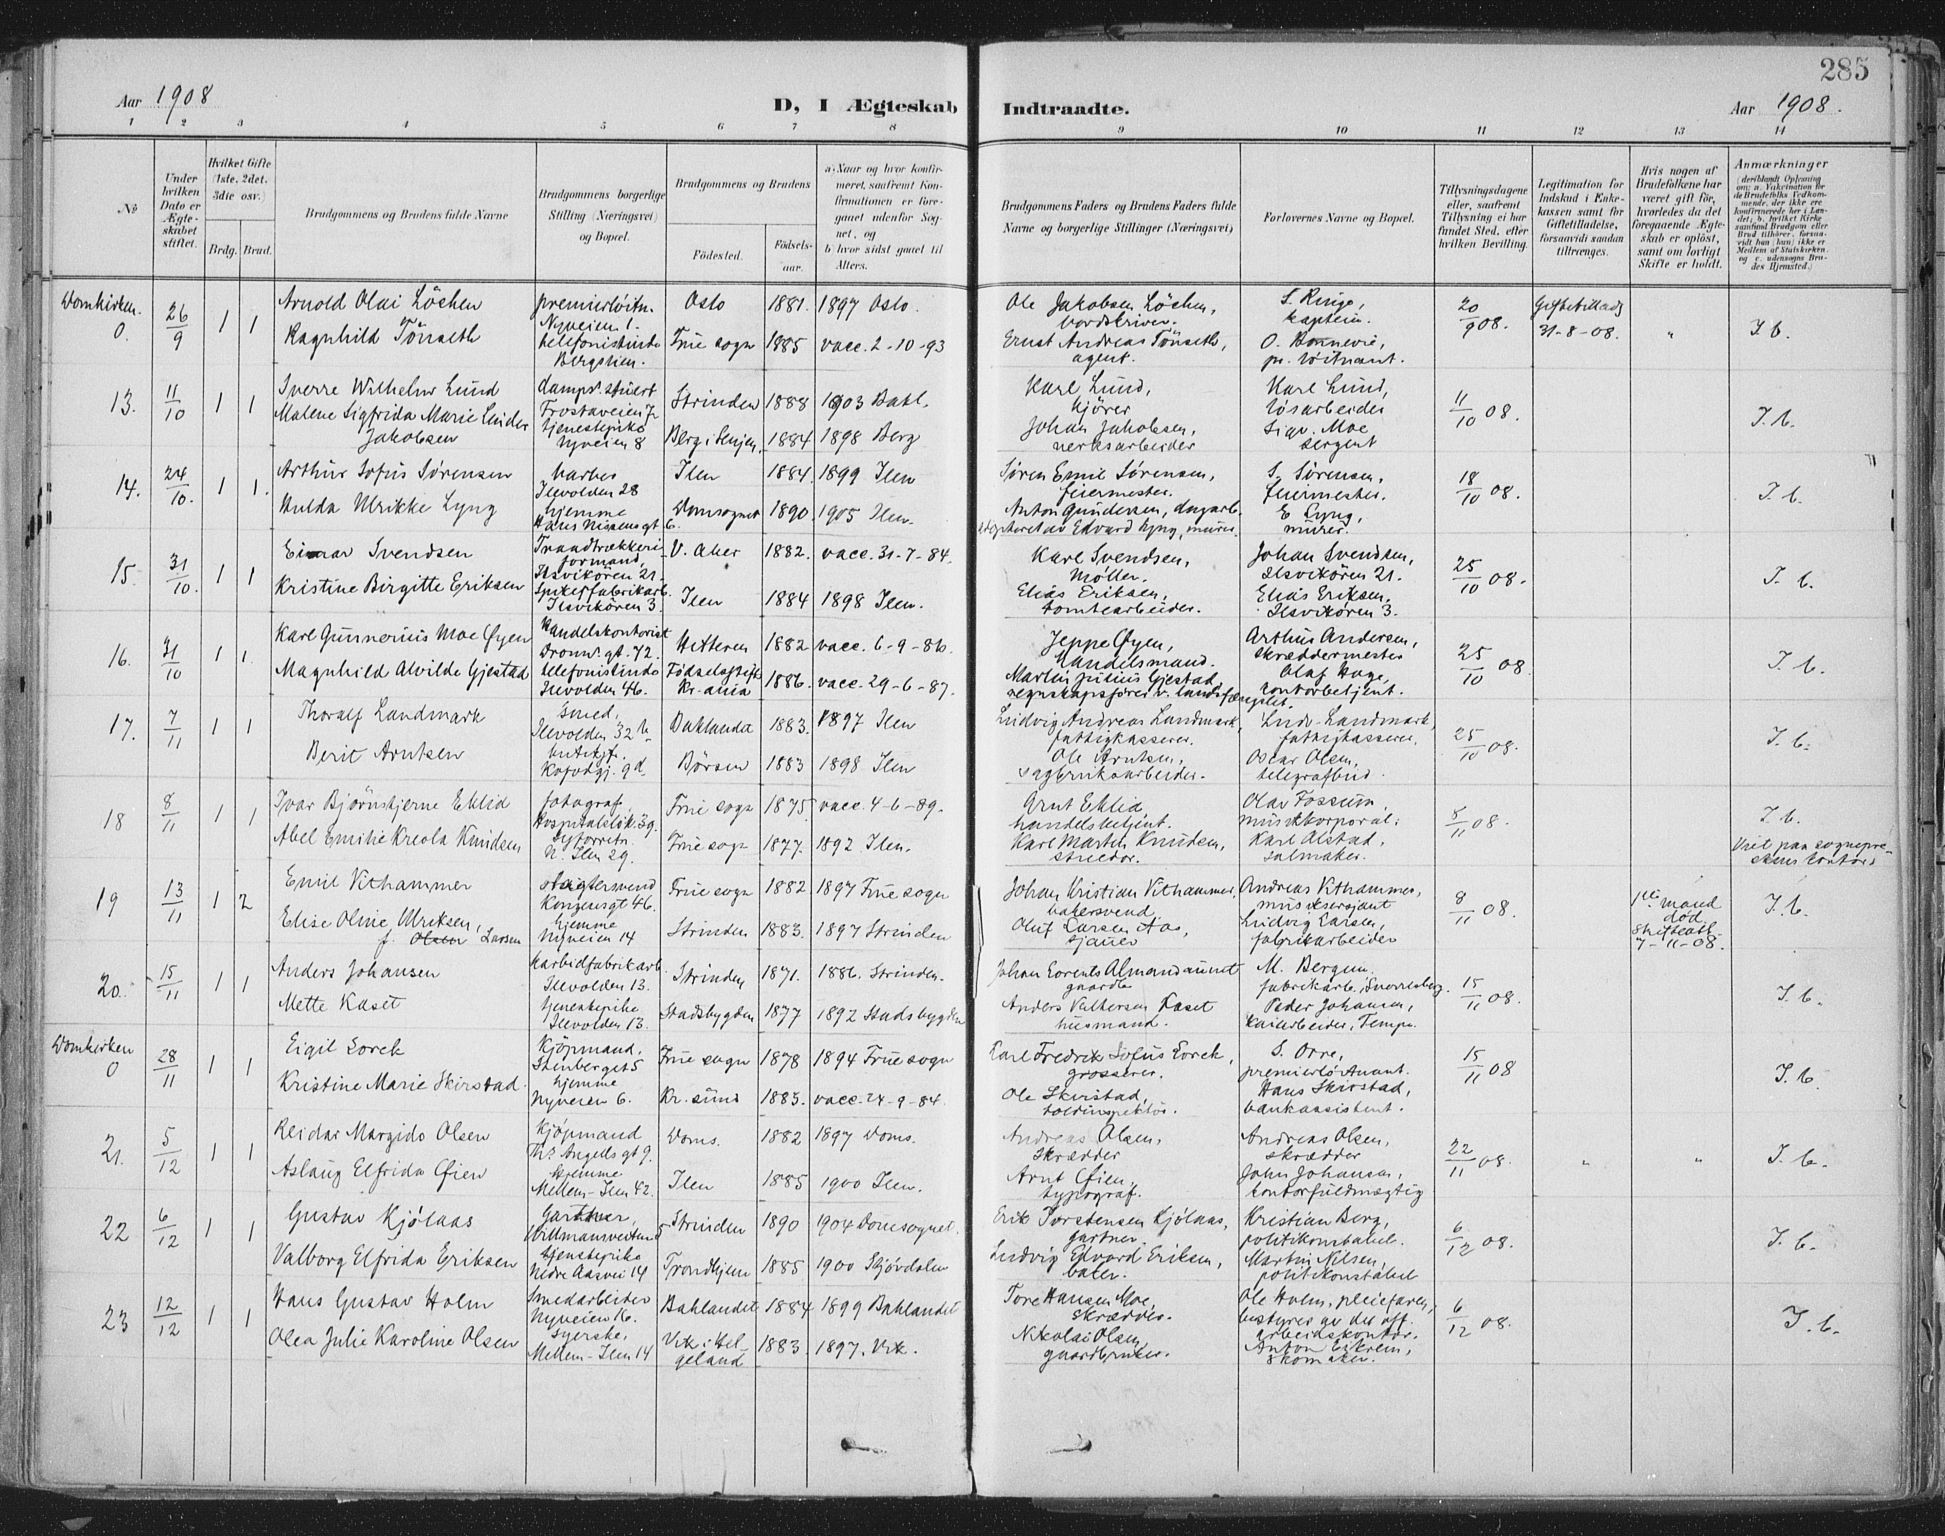 285
Aar 1908 D, I Ægteskab Indtraadte. Aar 1908.
1 2 3 4 5 6 7 8 9 10 11 12 13 14
No
Under hvilken Dato er Ægteskabet stiftet.
Hvilket Gifte (1ste, 2det, 3die osv.)
Brdg. Brud.
Brudgommens og Brudens fulde Navne
Brudgommens borgerlige Stilling (Næringsvei) og Bopæl.
Brudgommens og Brudens
Fødested. Fødsels-aar.
a) Naar og hvor konfirmeret, saafremt Konfirmationen er foregaaet udenfor Sognet, og
b) hvor sidst gaaet til Alters.
Brudgommens Faders og Brudens Faders fulde Navne og borgerlige Stillinger (Næringsvei)
Forlovernes Navne og Bopæl.
Tillysningsdagene eller, saafremt Tillysning ei har fundet Sted, efter hvilken Bevilling.
Legitimation for Indskud i Enkekassen samt for Giftetilladelse, forsaavidt saadan tiltrænges.
Hvis nogen af Brudefolkene har været gift før, hvorledes da det foregaaende Ægteskab er opløst, samt om lovligt Skifte er holdt.
Anmærkninger
Domkirken. 0 26/9 1 1
Arnold Olai Löchen premierlöitn. Nyveien 1. Oslo 1881. 1897 Oslo. Ole Jakobsen Löchen, S. Ringe, kaptein. 20/9 08. Giftetillads 31-8-08. " I b.
Ragnhild Tönseth telefonistinde Frue sogn 1885 vacc. 2-10-93 Ernst Andreas Tönseth, agent. O. Bonnevie, pr. löitnant.
13. 11/10 1 1
Sverre Wilhelm Lund Strinden 1888 1903 Bakl. Karl Lund, kjörer Karl Lund, lösarbeider 11/10 08. I. b.
Malene Sigfrida Marie Jakobsen tjenestepike Nyveien 8 Berg i Senjen, 1884 1898 Berg Johan Jakobsen, Sigv. Moe sergent
14. 24/10. 1 1.
Arthur Sofus Sørensen Ilevolden 28 Ilen 1884. 1899 Ilen Søren Emil Sørensen, feiermester. S. Sørensen, feiermester. 18/10 08. I b.
Hulda Ulrikke Lyng hjemme Hans Nissens gt 6. Domsognet 1890. 1905 Ilen. Anton Gundersen, dagarb. adopteret av Edvard Lyng, murer. E Lyng, murer.
15. 31/10. 1 1
Einar Svendsen Traadtrækkeri formand, Ilsvikören 21. V. Aker 1882. vacc. 31-7-84. Karl Svendsen, Møller. Johan Svendsen, Ilsvikören 21. 25/10 08. I. b.
Kristine Birgitte Eriksen Spikerfabrikarb. Ilsvikören 3. Ilen 1884 1898 Ilen. Elias Eriksen, tomtearbeider. Elias Eriksen, Ilsvikören 3.
16. 31/10 1 1.
Karl Gunnerius Moe Øyen Handelskontorist Dronn. gt. 72. Hitteren 1882 vacc. 6-9-86. Jeppe Øyen, Handelsmand. Arthur Andersen, skræddermester 25/10 08 I. b.
Magnhild Alvilde Gjestad telefonistinde Ilevolden 46. Fødselsstift. Kr.ania 1886. vacc. 29-6-87. Martin Julius Gjestad, regnskapsfører v. landsfængslet. Olaf Hage, kontorbetjent.
17. 7/11 1 1
Thoralf Landmark smed, Ilevolden 32 b Baklandet 1883. 1897 Ilen Ludvig Andreas Landmark, fattigkasserer. Ludv. Landmark, fattigkasserer. 25/10 08. I. b.
Berit Arntsen Børsen 1883 1898 Ilen Ole Arntsen, sagbruksarbeider. Oscar Olsen, telegrafbud.
18 8/11 1 1
Ivar Bjørnstjerne Eklid fotograf, Hospitalsløk. 39. Frue sogn 1875 vacc. 4-6-89. Arnt Eklid handelsbetjent. Olav Fossum, musikkorporal. 8/11 08. I. b.
Abel Emilie Kreola Knudsen N. Ilen 29. Frue sogn 1877. 1892 Ilen. Karl Martin Knudsen, stuedor. Karl Alstad, salmaker. Viet paa sogneprestens kontor.
19 13/11 1 2
Emil Vithammer slagtersvend Kongensgt 46. Frue sogn 1882 1897 Frue sogn Johan Kristian Vithammer, bakersvend. Andreas Vithammer, musiksersjant 8/11 08. 1ste mand död, skifteatt. 7-11-08. I. b.
Elise Olme Ulriksen, f. Olsen Larsen hjemme Nyveien 14 Strinden 1883. 1897 Strinden Oluf Larsen Aas, sjauer Ludvig Larsen, fabrikarbeider
20. 15/11 1 1
Anders Johansen Karbidfabrikarb. Ilevolden 13. Strinden 1871. 1886. Strinden. gaardbr. M. Bergum, fabrikarb., Snorresberg. 15/11 08. I. b.
Mette Kaset tjenestepike Ilevolden 13. Stadsbygden 1877 1892 Stadsbygden Anders Kaset husmand. Peder Johansen, kaiarbeider, Tempe.
Domkirken 0 28/11 1 1
Eigil Lorck Kjøpmand, Stenberget 5 Frue sogn 1878 1894 Frue sogn Karl Fredrik Sofus Lorck, grosserer. S. Orre, premierløitnant. 15/11 08 I. b.
Kristine Marie Skirstad. hjemme Nyveien 6. Kr. sund 1883. vacc. 24-9-84. Ole Skirstad, toldinspektör. Hans Skirstad, bankassistent.
21. 5/12 1 1
Reidar Margido Olsen Kjøpmand Ths Angells gt 9. Doms. 1882 1897 Doms. Andreas Olsen, skrædder Andreas Olsen, skrædder 22/11 08. " " I. b.
Aslaug Elfrida Øien hjemme Mellem-Ilen 42. Ilen 1885 1900 Ilen. Arnt Øien, typograf. John Johansen, kontorfuldmægtig
22 6/12 1 1
Gustav Kjölaas Gartner, Strinden 1890 1904 Domsognet. Erik Torstensen Kjölaas, gartner. Kristian Berg, politikonstabel. 6/12 08. I. b.
Valborg Elfrida Eriksen tjenestepike Nedre Aasvei 14 Trondhjem 1885 1900 Skjövdalen Ludvig Edvard Eriksen, baker. Martin Nilsen, politikonstabel
23 12/12 1 1
Hans Gustav Holm Smedarbeider Nyveien 16. Baklandet 1884 1899 Baklandet Tore Hansen Moe, Skrædder. Ole Holm, pleiefaren, bestyrer av det off. arbeidskontor. 6/12 08. I. b.
Olea Julie Karoline Olsen Syerske, Mellem-Ilen 14 Vik i Helgeland 1883. 1897. Vik. Nikolai Olsen, gaardbruker. Anton Eikrem, skomaker.